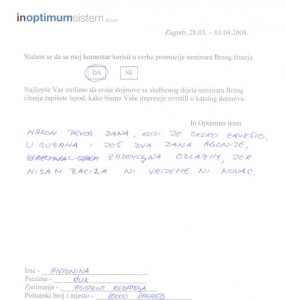 inoptimumsistem d.o.o.
Zagreb, 28.03. - 03.04.2008.
Slažem se da se moj komentar koristi u svrhu promocije seminara Brzog čitanja.
DA NE
Najljepše Vas molimo da svoje dojmove sa službenog dijela seminara Brzog
čitanja zapišete ispod, kako bismo Vaše impresije uvrstili u katalog dojmova.
In Optimum team
NAKON PRVOG DANA, KOJI JE SKORO ZAVRŠIO,
U SUZAMA I JOŠ DVA DANA AGONIJE,
ZADOVOLJNA ODLAZIM, JER
NISAM BACILA NI VRIJEME NI NOVAC.
Ime - ANTONINA
Prezime -
Zanimanje -
Poštanski broj i mjesto - 10000 ZAGREB